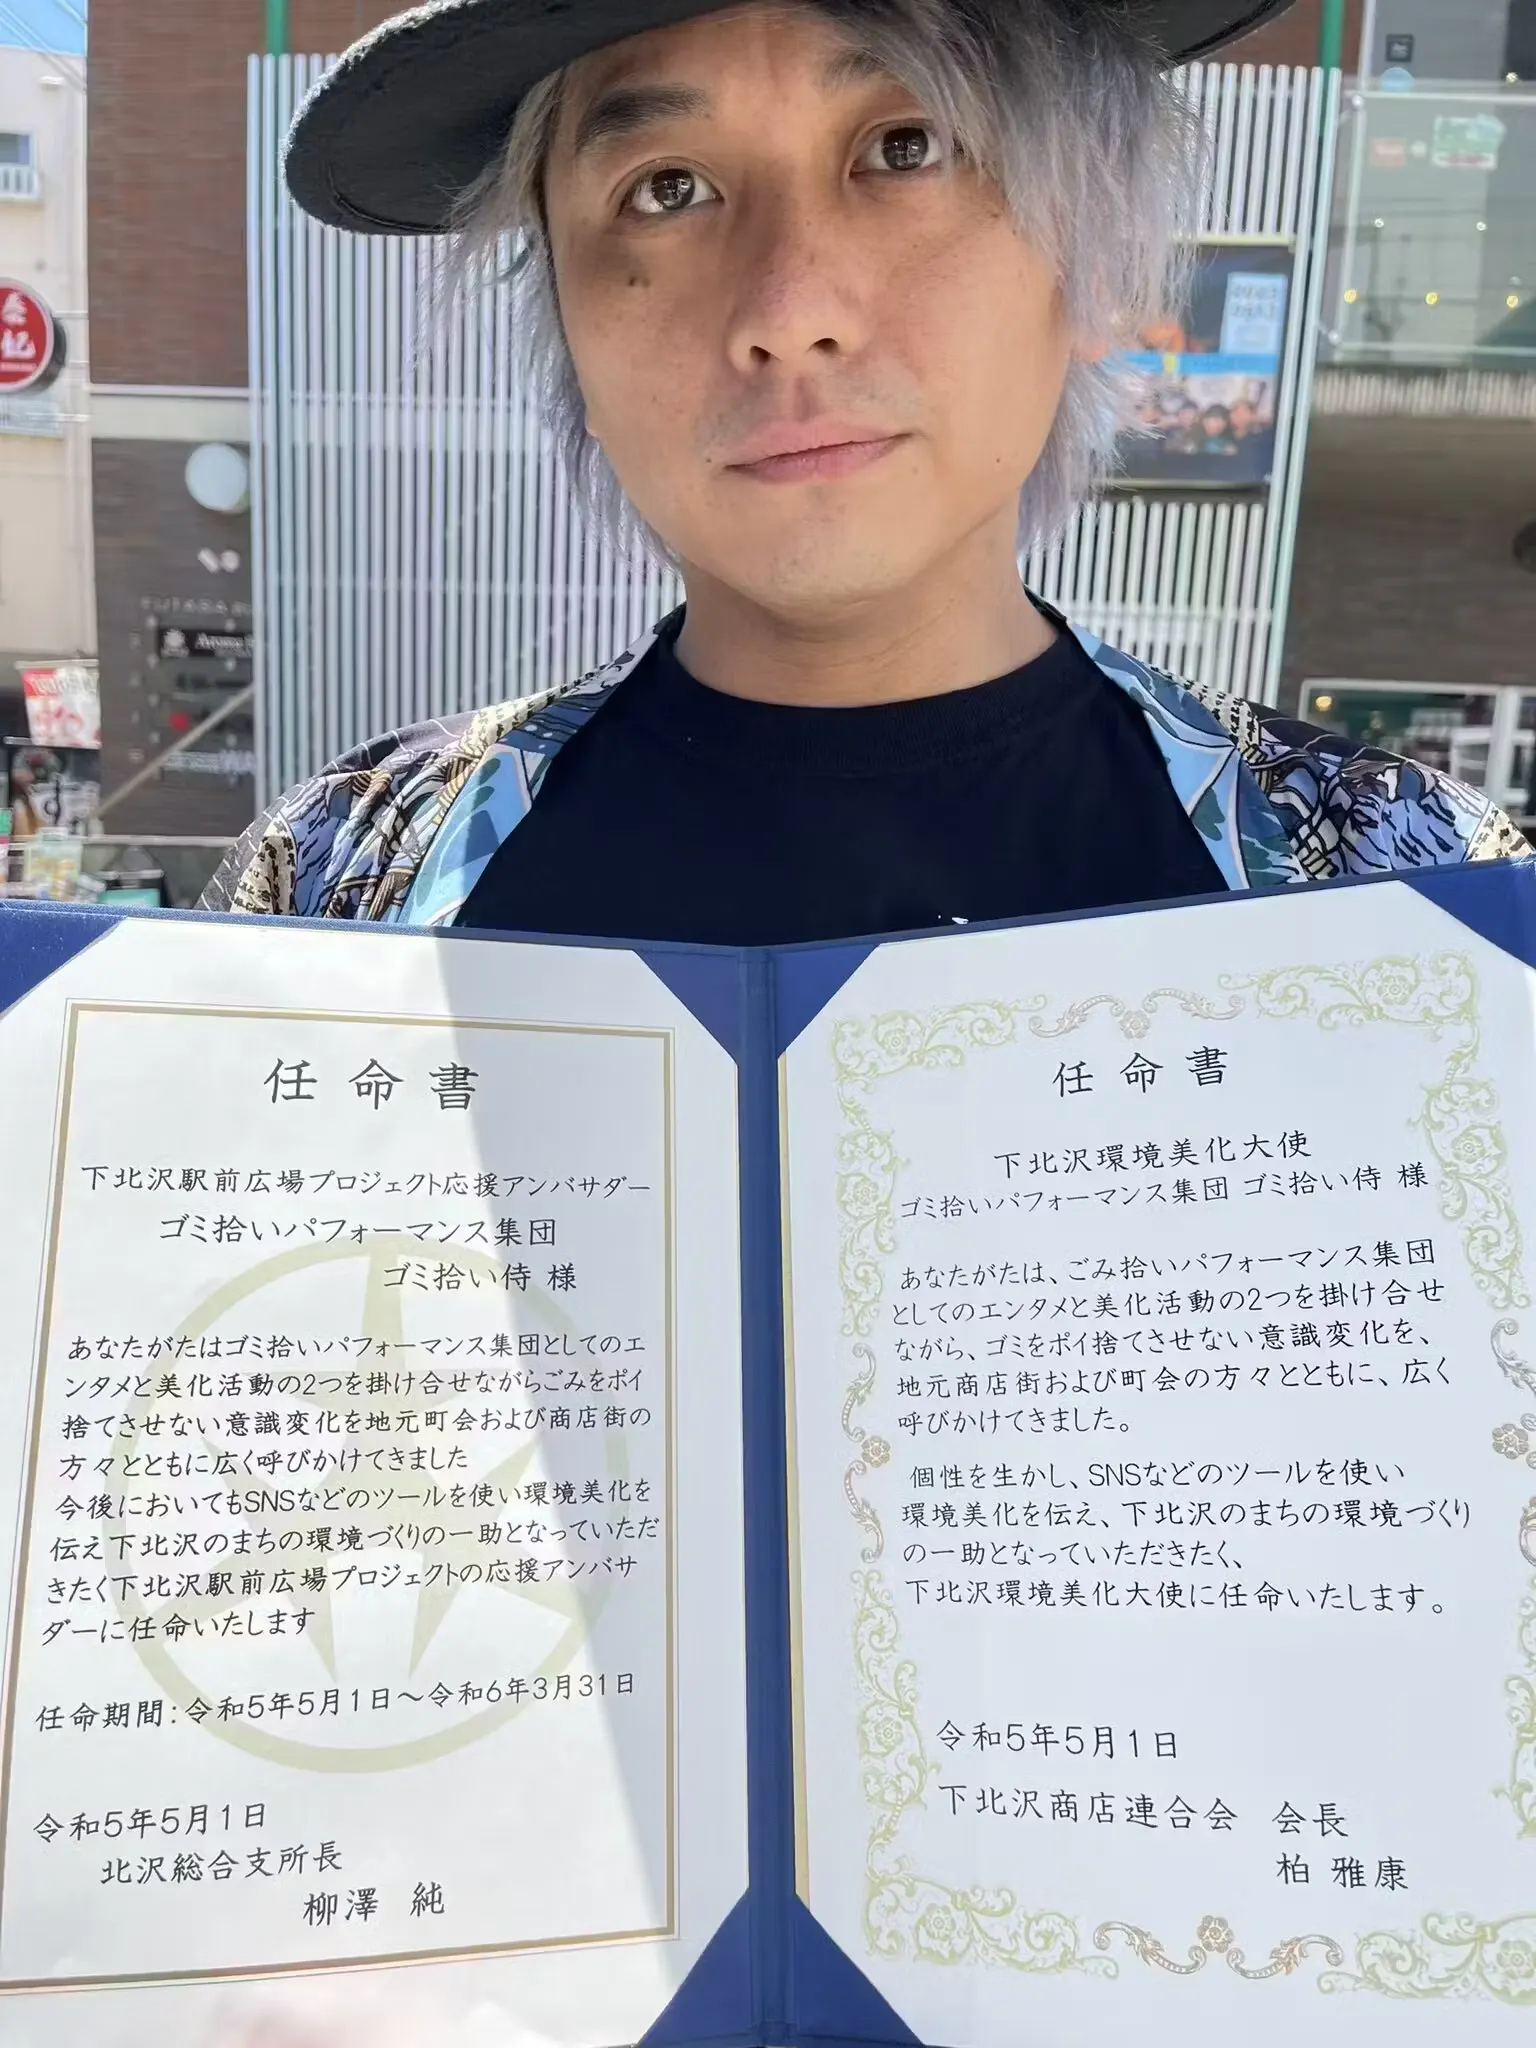 任命書
下北沢駅前広場プロジェクト応援アンバサダー
ゴミ拾いパフォーマンス集団
ゴミ拾い侍 様
あなたがたはゴミ拾いパフォーマンス集団としてのエ
ンタメと美化活動の2つを掛け合せながらごみをポイ
捨てさせない意識変化を地元町会および商店街の
方々とともに広く呼びかけてきました
今後においてもSNSなどのツールを使い環境美化を
伝え下北沢のまちの環境づくりの一助となっていただ
きたく下北沢駅前広場プロジェクトの応援アンバサ
ダーに任命いたします
任命期間:令和5年5月1日～令和6年3月31日
令和5年5月1日
北沢総合支所長
柳澤 純
任命書
下北沢環境美化大使
ゴミ拾いパフォーマンス集団 ゴミ拾い侍 様
あなたがたは、ごみ拾いパフォーマンス集団
としてのエンタメと美化活動の2つを掛け合せ
ながら、ゴミをポイ捨てさせない意識変化を、
地元商店街および町会の方々とともに、広く
呼びかけてきました。
個性を生かし、SNSなどのツールを使い
環境美化を伝え、下北沢のまちの環境づくり
の一助となっていただきたく、
下北沢環境美化大使に任命いたします。
令和5年5月1日
下北沢商店連合会 会長
柏 雅康